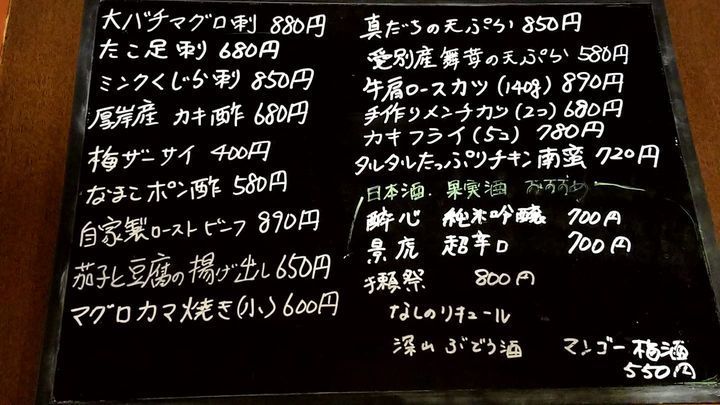 大バチマグロ刺 880円
たこ足刺 680円
ミンクくじら刺 850円
厚岸産 カキ酢 680円
梅ザーサイ 400円
なまこポン酢 580円
自家製ローストビーフ 890円
茄子と豆腐の揚げ出し 650円
マグロカマ焼き(小) 600円
真だちの天ぷら 850円
愛別産舞茸の天ぷら 580円
牛肩ロースカツ(140g) 890円
手作りメンチカツ(2コ) 680円
カキフライ(5コ) 780円
タルタルたっぷりチキン南蛮 720円
日本酒、果実酒 おすすめ
酔心 純米吟醸 700円
景虎 超辛口 700円
獺祭 800円
なしのリキュール
深山ぶどう酒 マンゴー梅酒
550円